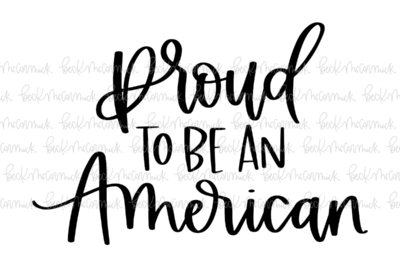 Proud
TO BE AN
American